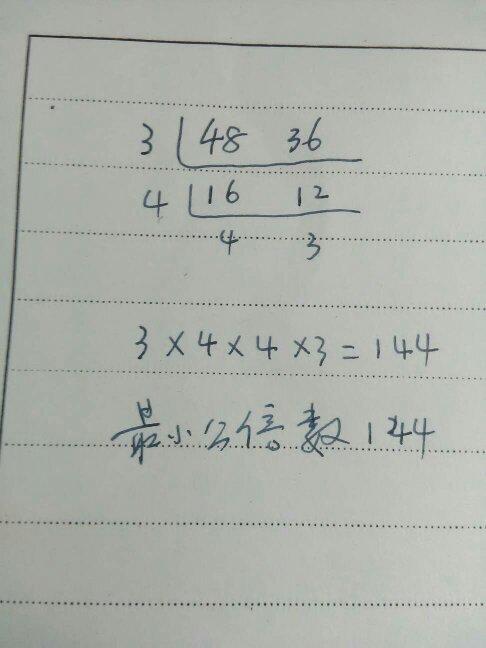 3 48 36
4 16 12
4 3
3×4×4×3=144
最小公倍数144